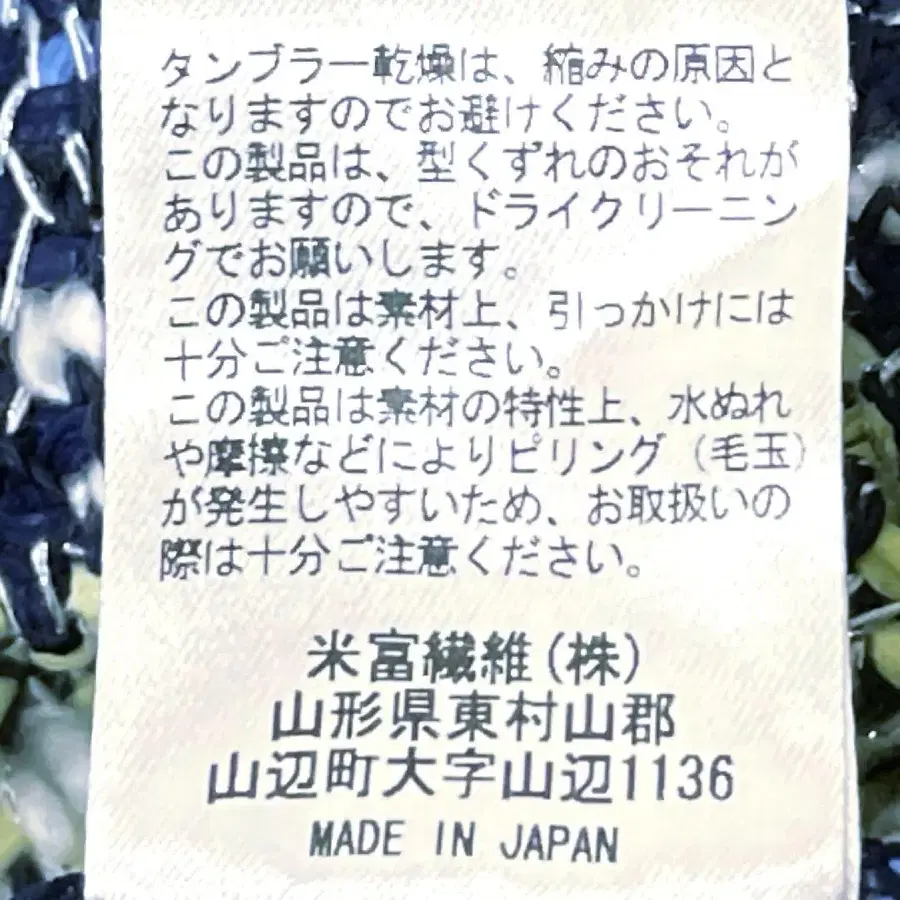 タンブラー乾燥は、縮みの原因と
なりますのでお避けください。
この製品は、型くずれのおそれが
ありますので、ドライクリーニン
グでお願いします。
この製品は素材上、引っかけには
十分ご注意ください。
この製品は素材の特性上、水ぬれ
や摩擦などによりピリング(毛玉)
が発生しやすいため、お取扱いの
際は十分ご注意ください。
米富繊維(株)
山形県東村山郡
山辺町大字山辺1136
MADE IN JAPAN